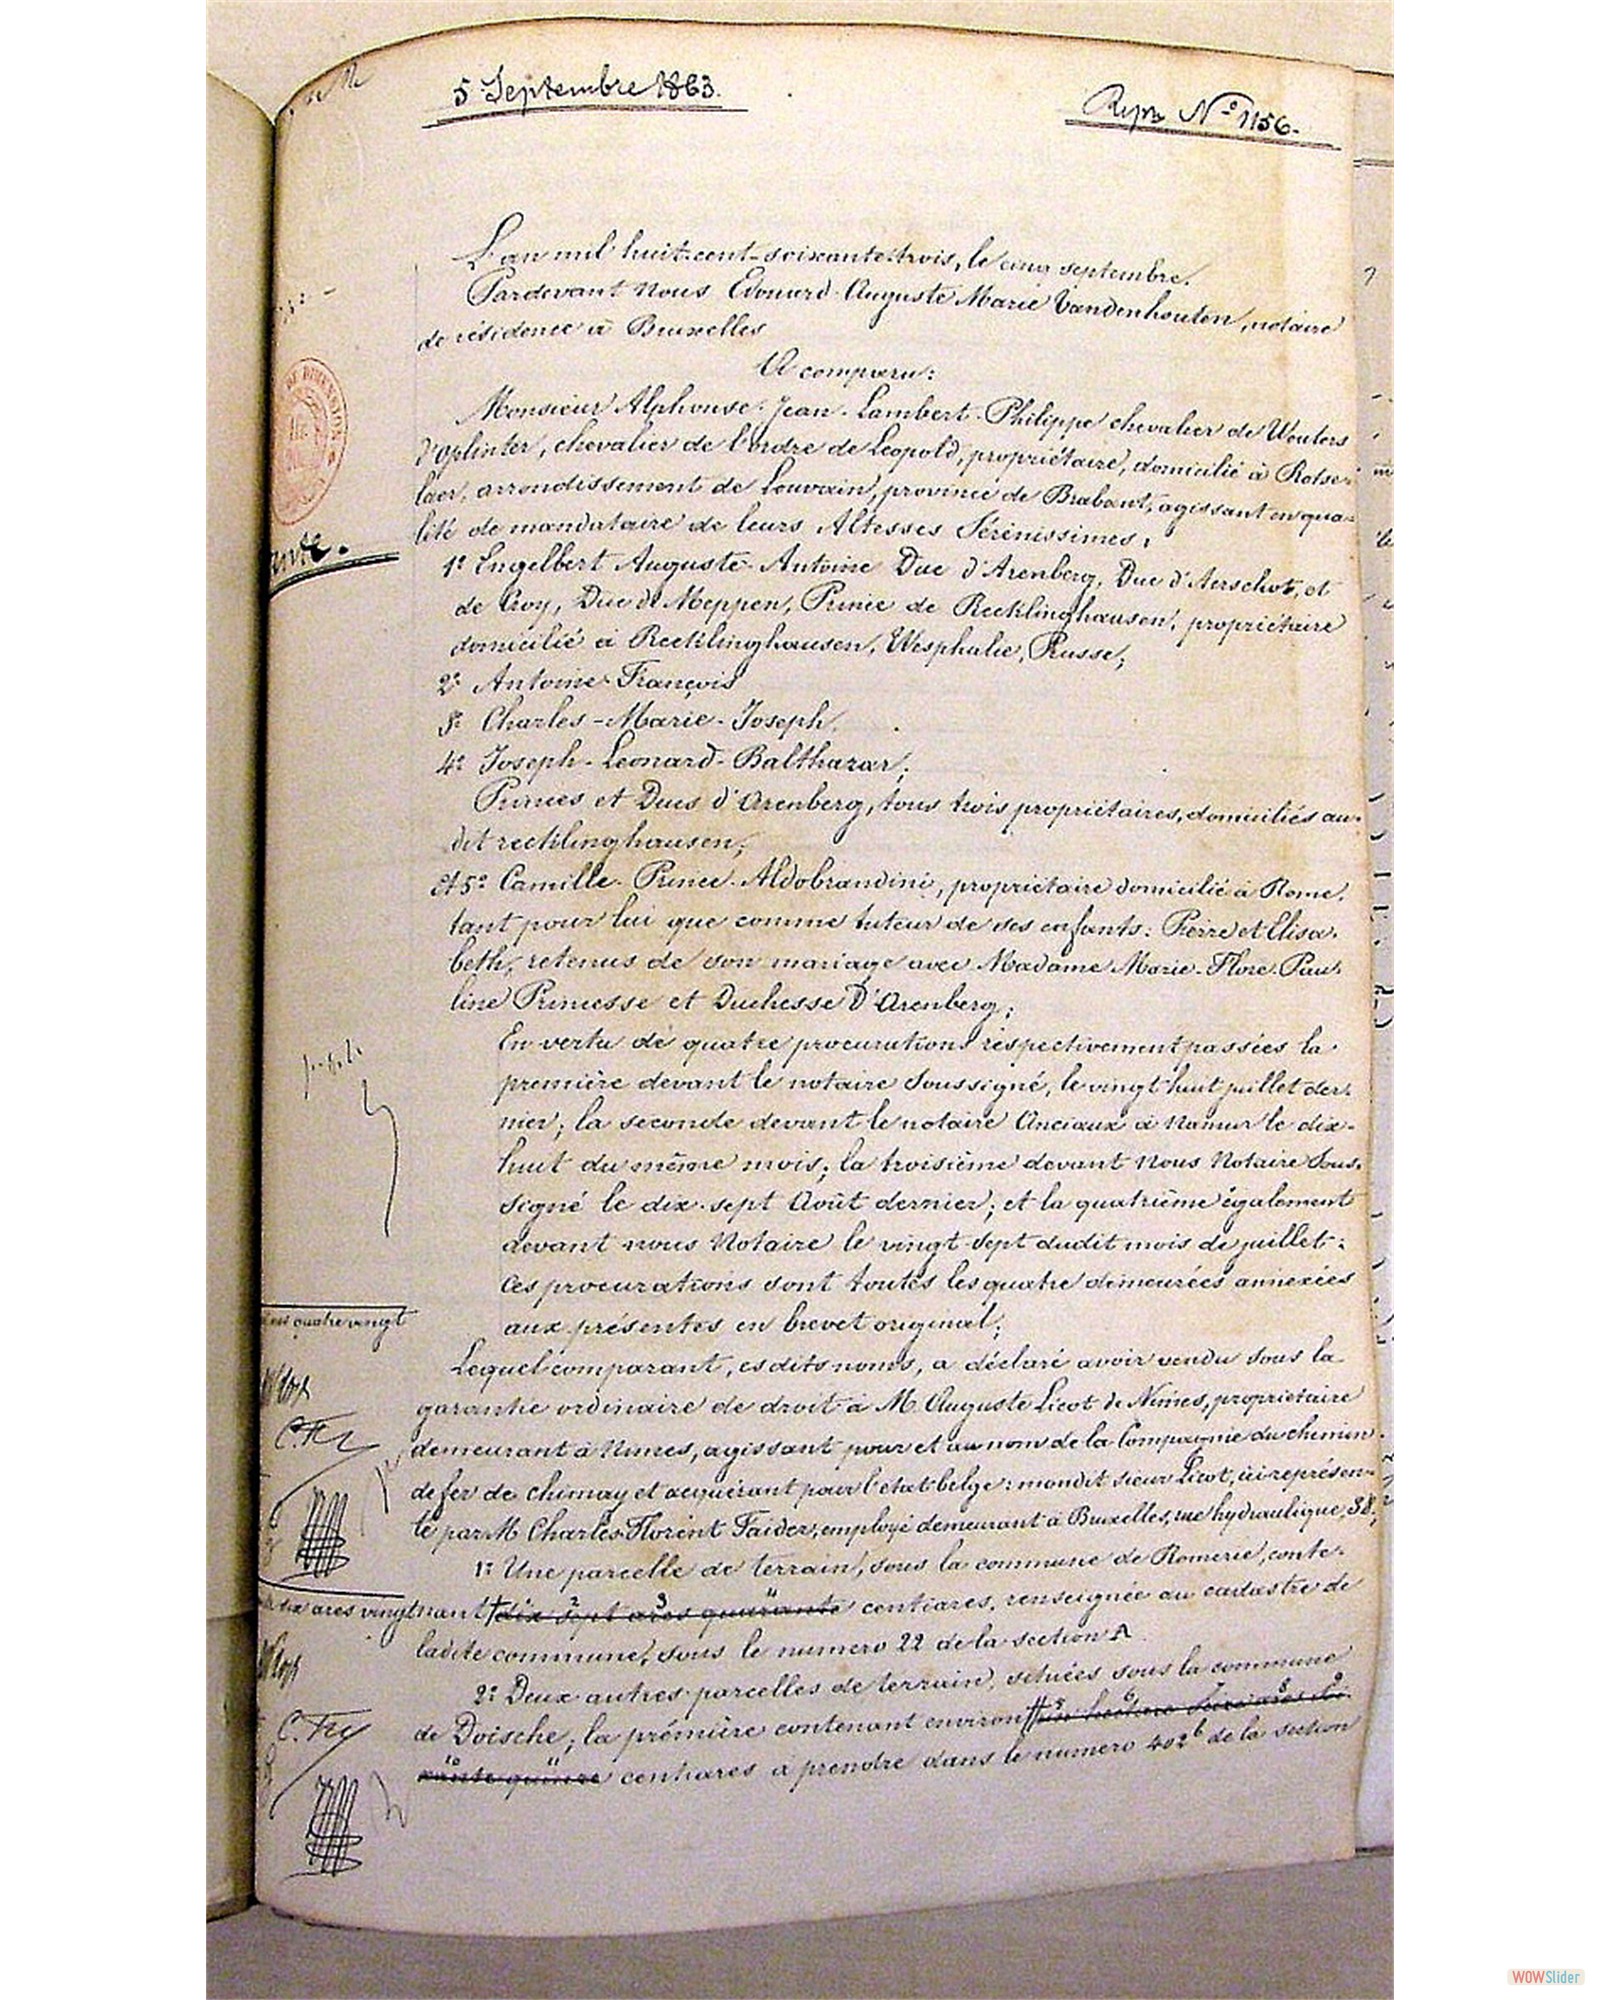 5 Septembre 1863.
Repre N° 1156.
L'an mil huit-cent-soixante-trois, le cinq septembre.
Pardevant Nous Edouard-Auguste Marie Vandenhouten, notaire
de résidence à Bruxelles
A comparu:
Monsieur Alphonse-Jean-Lambert-Philippe chevalier de Wouters
d'oplinter, chevalier de l'ordre de Léopold, propriétaire, domicilié à Rotse-
laer, arrondissement de Louvain, province de Brabant, agissant en qua-
lité de mandataire de leurs Altesses Sérénissimes,
1° Engelbert Auguste-Antoine Duc d'Arenberg, Duc d'Aerschot, et
de Croy, Duc de Meppen, Prince de Recklinghausen, propriétaire
domicilié à Recklinghausen, Wesphalie, Prusse;
2° Antoine-François
3° Charles-Marie-Joseph.
4° Joseph-Léonard-Balthazar;
Princes et Ducs d'Arenberg, tous trois propriétaires, domiciliés au-
dit recklinghausen;
et 5° Camille-Prince-Aldobrandini, propriétaire domicilié à Rome.
tant pour lui que comme tuteur de ses enfants: Pierre et Elisa-
beth, retenus de son mariage avec Madame Marie-Flore-Pau-
line Princesse et Duchesse D'Arenberg;
En vertu de quatre procurations respectivement passées la
première devant le notaire soussigné, le vingt huit juillet der-
nier; la seconde devant le notaire Anciaux à Namur le dix-
huit du même mois; la troisième devant Nous Notaire sous-
signé le dix-sept Août dernier; et la quatrième également
devant nous Notaire le vingt-sept dudit mois de juillet:
ces procurations sont toutes les quatre demeurées annexées
aux présentes en brevet original;
Lequel comparant, esdits noms, a déclaré avoir vendu sous la
garantie ordinaire de droit à M. Auguste Licot de Nimes, propriétaire
demeurant à Nimes, agissant pour et au nom de la Compagnie du chemin
de fer de Chimay et acquérant pour l'état belge: mondit sieur Licot, ici représen-
té par M Charles Florent Faider, employé demeurant à Bruxelles, rue hydraulique, 38;
1° Une parcelle de terrain, sous la commune de Romerée, conte-
nant dix sept ares quarante centiares, renseignée au cadastre de
ladite commune, sous le numero 22 de la section A
2° Deux autres parcelles de terrain, situées sous la commune
de Doische; la prémière contenant environ
centiares à prendre dans le numero 402b de la section
quatre vingt
dix ares vingt
C. Fr
C. Fr
WOWSlider